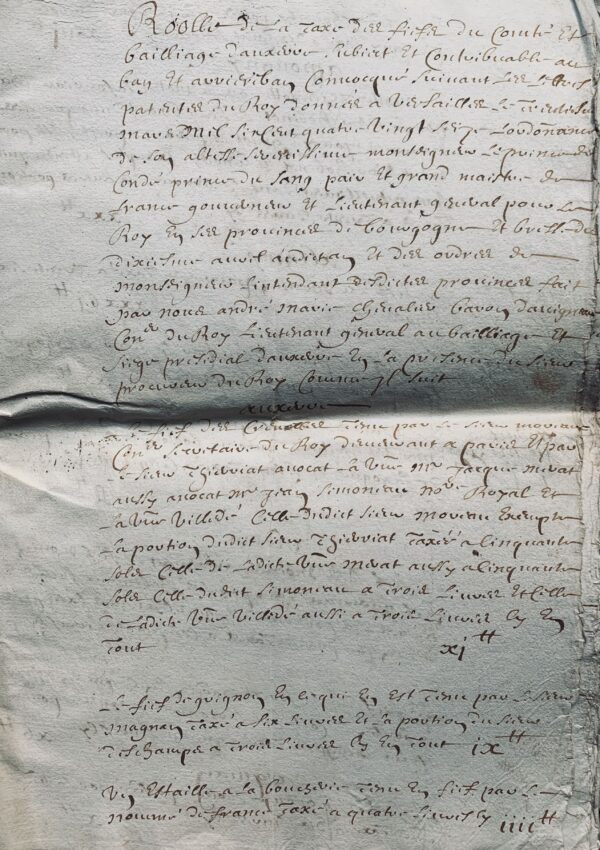 Roolle de La Taxe des fiefs du Comté Et
bailliage dauxerre subiect Et Contribuable au
ban Et arriereban Convocqué suivant Les Lettres
patentes du Roy données a versailles Le
mars Mil six Cent quatre vingt seize Lordonnance
de son altesse serenissime monseigneur Le prince de
Condé prince du sang pair et grand maistre de
france gouverneur Et Lieutenant general pour Le
Roy En ses provinces de bourgogne et bresse du
dixiesme avril audict an Et des ordres de
monseigneur Lintendant desdictes provinces fait
par nous andré marie chevalier baron
Con.er du Roy Lieutenant general au bailliage Et
siege presidial dauxerre En La presence du sieur
procureur du Roy Comme Il suit
auxerre
Le fief des tenu par Le sieur moreau
Con.er secretaire du Roy demeurant a paris Et par
Le sieur Thierriat avocat La v.ve m.re Jacque
aussy avocat m.re Jean Simoneau no.re Royal Et
La v.ve villedé Celle dudict sieur moreau Exempte
La portion dudict sieur Thierriat Taxée a Cinquante
sols Celle de Ladicte v.ve aussy a Cinquante
sols Celle dudict Simoneau a Trois Livres Et Celle
de Ladicte v.ve villedé aussi a Trois Livres Cy En
Tout xj ₶
Le fief de guignon En ce qui En Est Tenu par Le sieur
magnan Taxé a six Livres Et La portion du sieur
deschamps a Trois Livres Cy En Tout ix ₶
Un Estaille a La boucherie Tenu En fief par Le
nommé de france Taxé a quatre Livres Cy iiii ₶